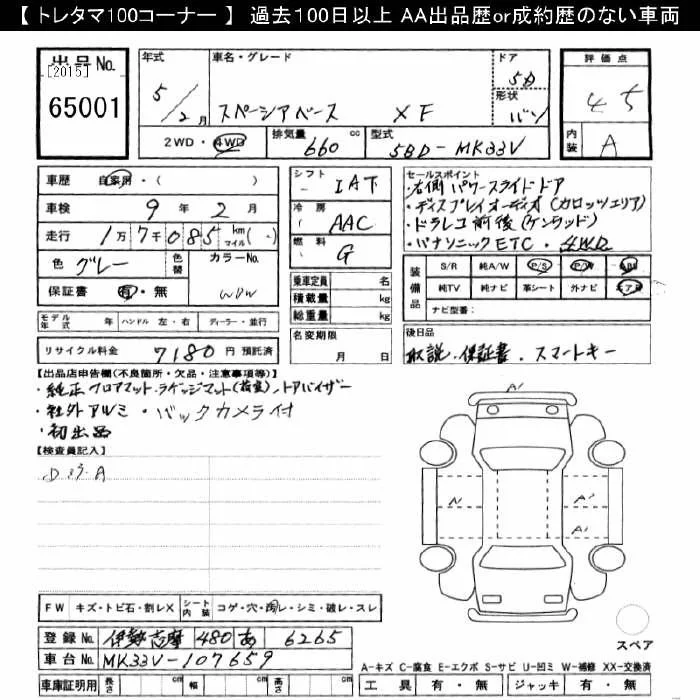 【 トレタマ100コーナー 】 過去100日以上 AA出品歴or成約歴のない車両
出品No.
[2015]
65001
年式
5/2月
車名・グレード
スペーシアベース XF
ドア
5D
形状
バン
評価点
4.5
内装
A
2WD・4WD
排気量
660 cc
型式
5BD-MK33V
車歴
自家用・( )
車検
9年2月
走行
1万7千085 km マイル( )
色
グレー
色替
カラーNo.
保証書
有・無
シフト
IAT
冷房
AAC
燃料
G
乗車定員 名
積載量 kg
総重量 kg
名変期限
月 日
セールスポイント
・右側パワースライドドア
・ディスプレイオーディオ(カロッツェリア)
・ドラレコ前後(ケンウッド)
・パナソニックETC・4WD
装備品
S/R 純A/W P/S P/W ABS
純TV 純ナビ 革シート 外ナビ エアB
ナビ型番:
モデル年式 ハンドル 左・右 ディーラー・並行
リサイクル料金 7180円 預託済
後日品
取説・保証書・スマートキー
【出品店申告欄(不良箇所・欠品・注意事項等)】
・純正フロアマット・ラゲッジマット(荷室)、ドアバイザー
・社外アルミ・バックカメラ付
・初出品
【検査員記入】
A1
A1
A1
FW キズ・トビ石・割レX
シート内装 コゲ・穴・凹レ・シミ・破レ・スレ
登録No. 伊勢志摩 480 あ 6265
車台No. MK33V-107659
車庫証明用 長さ cm 幅 cm 高さ cm
スペア
A-キズ C-腐食 E-エクボ S-サビ U-凹ミ W-補修 XX-交換済
工具 有・無 ジャッキ 有・無